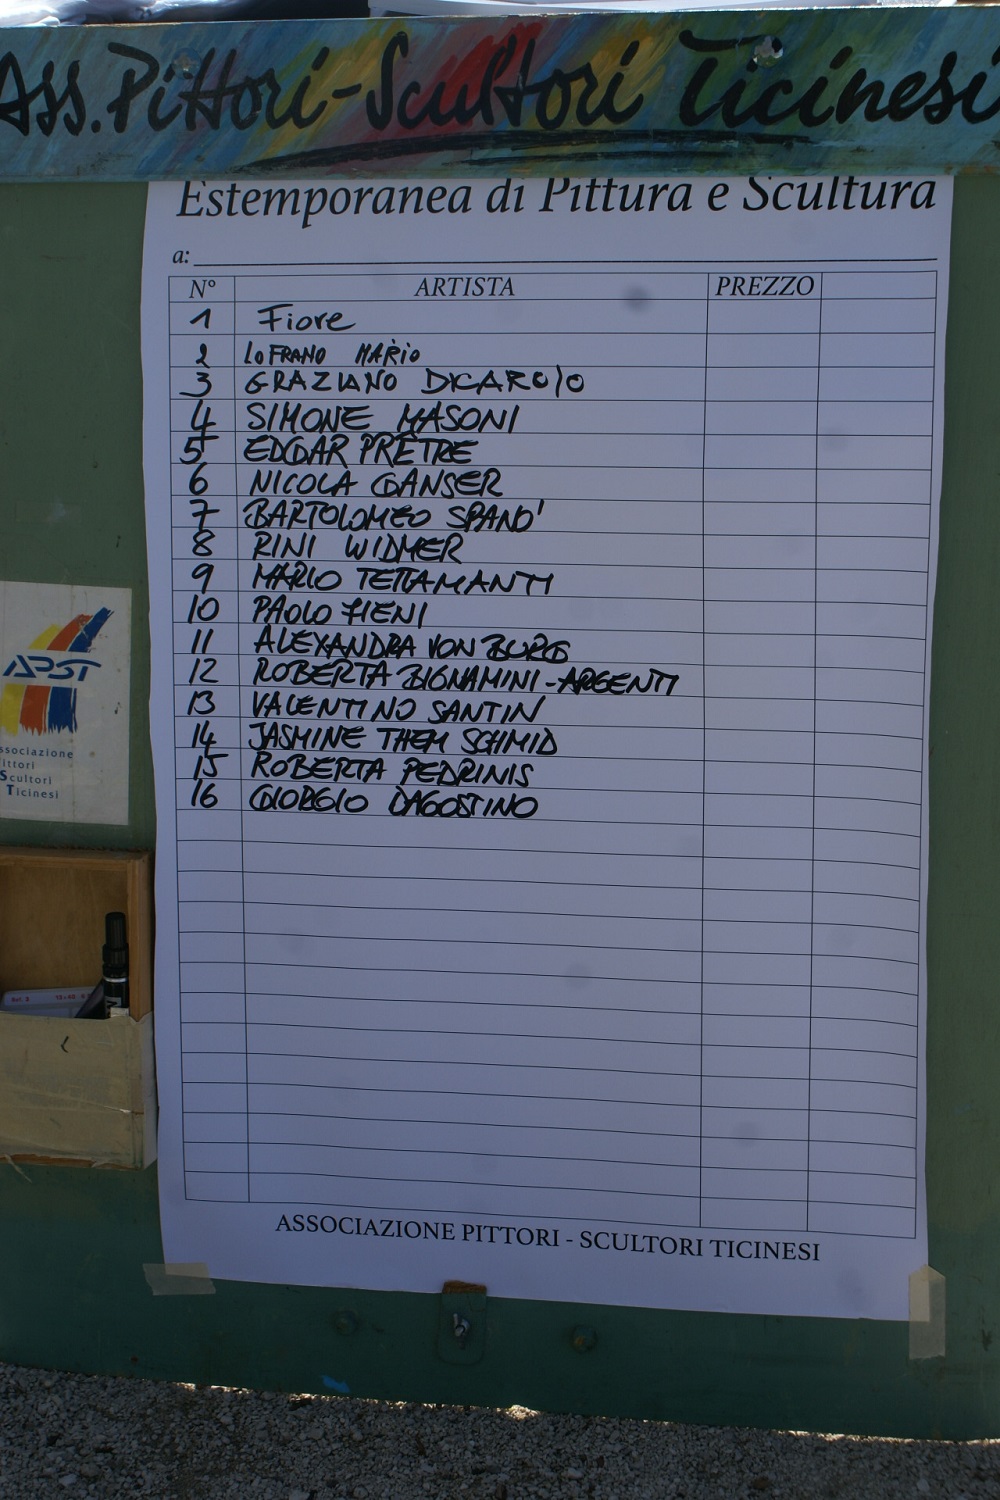 Ass. Pittori-Scultori Ticinesi
Estemporanea di Pittura e Scultura
a:
N° ARTISTA PREZZO
1 Fiore
2 LOFRANO MARIO
3 GRAZIANO DICAROLO
4 SIMONE MASONI
5 EDGAR PRÊTRE
6 NICOLA GANSER
7 BARTOLOMEO SPANO'
8 RINI WIDMER
9 MARIO TETTAMANTI
10 PAOLO FIENI
11 ALEXANDRA VON BURG
12 ROBERTA BIGNAMINI-ARGENTI
13 VALENTINO SANTIN
14 JASMINE THEM SCHMID
15 ROBERTA PEDRINIS
16 GIORGIO DAGOSTINO
ASSOCIAZIONE PITTORI - SCULTORI TICINESI
APST
ssociazione
ittori
Scultori
Ticinesi